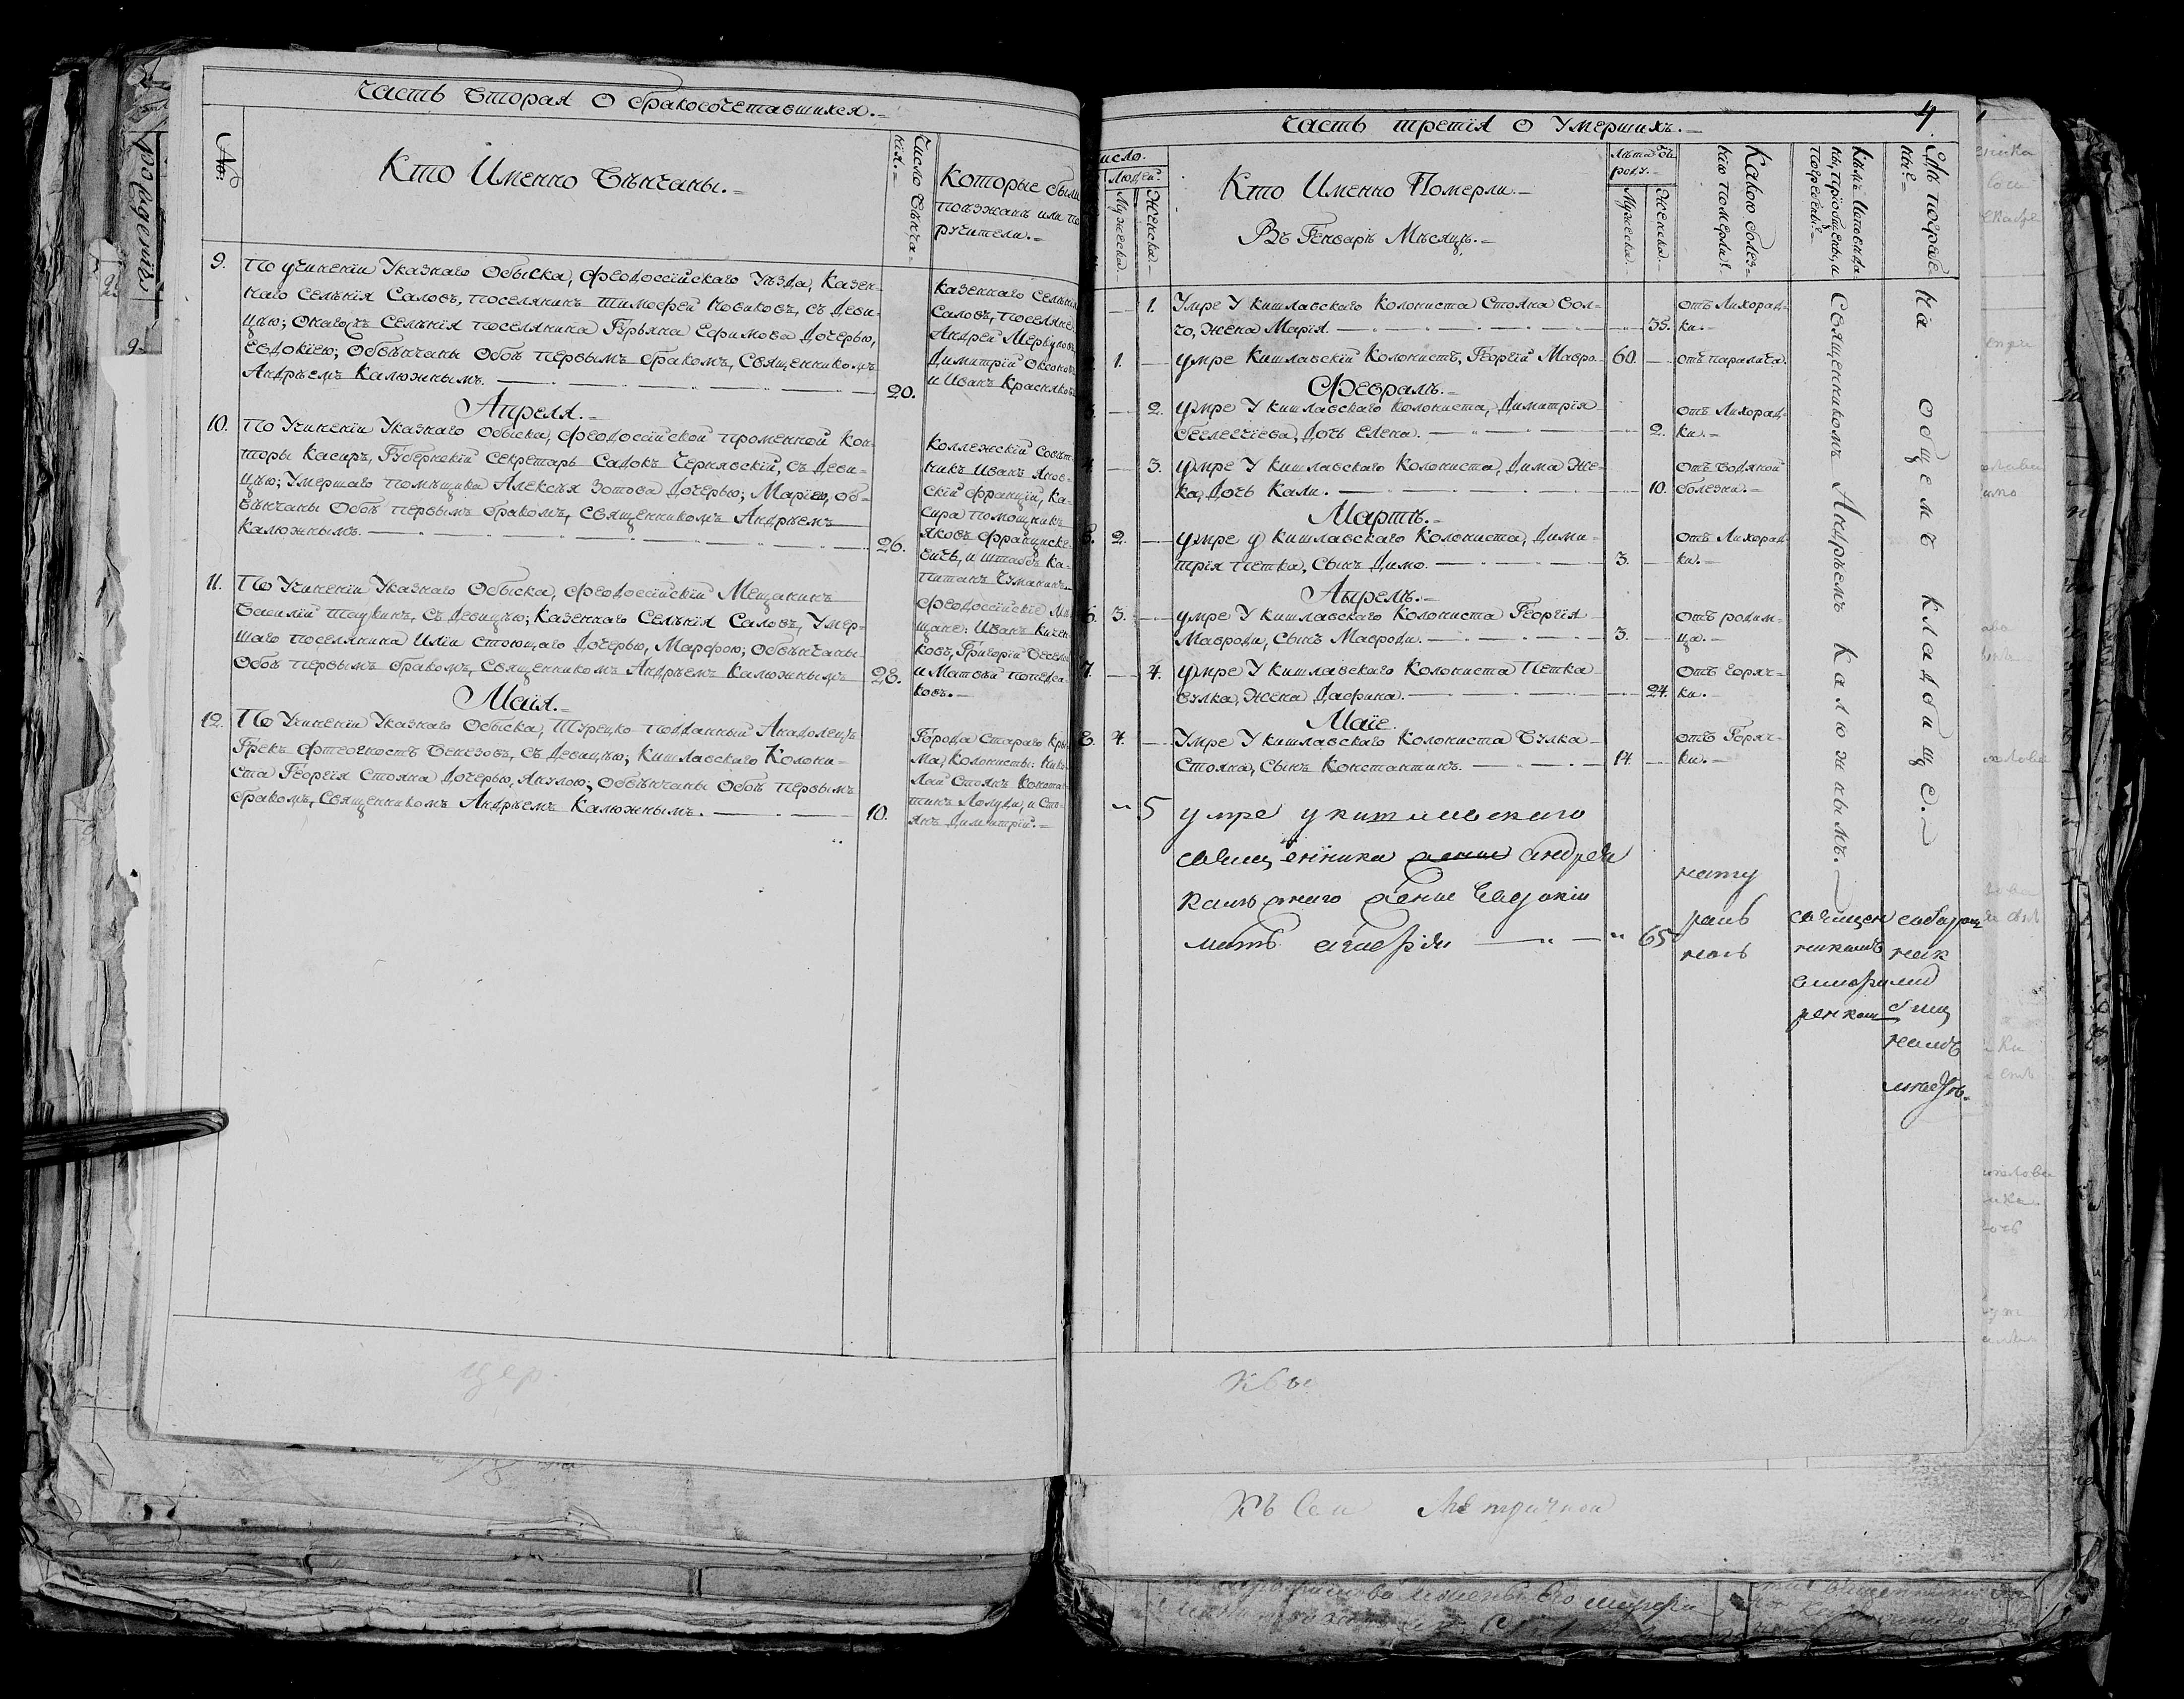 Часть вторая о бракосочетавшихся.
№:
Кто Именно Вѣнчаны.
Число Вѣнча-
нія.
Которые были
поѣзжанѣ или по
ручители.
9.
По учиненіи Указнаго Обыска, Феодосійскаго Уѣзда, Казен-
наго Селѣнія Саловъ, поселянинъ Тимофей Новиковъ, съ Деви-
цѣю; Онагожъ Селѣнія поселянина Гурьяна Ефимова Дочерью,
Евдокіею; Обвѣнчаны Обоѣ первымъ бракомъ, Священникомъ
Андрѣемъ Калюжнымъ.
20.
Казеннаго Селѣнія
Саловъ, поселяне
Андрей Меркулов
Димитрій
и Иванъ Красняков
Апреля.
10.
По Учиненіи Указнаго Обыска, Феодосійской Променной Кон-
торы Касиръ, Губернскій Секретарь Садокъ Чернявскій, съ Деви-
цѣю; Умершаго помѣщика Алексѣя Зотова Дочерью; Маріею, об-
вѣнчаны Обоѣ первымъ бракомъ, Священникомъ Андрѣемъ
Калюжнымъ.
26.
Коллежскій Совѣт-
никъ Иванъ Янов-
скій Францій, Ка-
сира помощникъ
Яковъ Франциске-
вичъ, и штабсъ Ка-
питанъ Чуманинъ.
11.
По Учиненіи Указнаго Обыска, Феодосійскій Мещанинъ
Василій Таукинъ, съ Девицѣю; Казеннаго Селѣнія Саловъ, Умер-
шаго поселянина Иліи Стоющаго Дочерью, Марфою; Обвѣнчаны
Обоѣ первымъ бракомъ, Священникомъ Андрѣемъ Калюжнымъ
28.
Феодосійскіе Мѣ-
щане: Иванъ Кичен-
ковъ, Григорій Весело
и Матвѣй
ковъ.
Маія.
12.
По Учиненіи Указнаго Обыска, Турецко-подданный Анадолецъ
Грекъ Фтеогностъ Венезовъ, съ Девицѣю; Кишлавскаго Колони-
ста Георгія Стояна Дочерью, Янулою; Обвѣнчаны Обоѣ первымъ
бракомъ, Священникомъ Андрѣемъ Калюжнымъ.
10.
Города Стараго Кры-
ма, Колонисты: Нико-
лай Стоянъ Констан-
тинъ Лолуди, и Сто-
янъ Димитрій.
цер.
4
Часть третія о Умершихъ.
исло.
Людей
Мужеска.
Женска.
Кто Именно Померли.
Въ Генварѣ Мѣсяцѣ.
Лѣта отъ
роду.
Мужеска.
Женска.
Какою болез-
нію померли?
Кѣмъ Исповѣда-
ны, пріобщены, и
погребены?
Гдѣ погребе
ны?
1.
Умре У Кишлавскаго Колониста Стояна Вол-
чо, Жена Марія.
35.
Отъ Лихорад-
ки.
1.
умре Кишлавскій Колонистъ, Георгій Мавро-
60.
Отъ паралича.
Февраль.
2.
умре У Кишлавскаго Колониста, Димитрія
Беглевчіева, Дочь Елена.
2.
Отъ Лихорад-
ки.
4.
3.
умре У Кишлавскаго Колониста, Дима Же-
ка, Дочь Кали.
10.
Отъ Водяной
болезни.
Мартъ.
5.
2.
умре у Кишлавскаго Колониста, Дими-
трія Петка, Сынъ Димо.
3.
Отъ Лихорад-
ки.
Апрель.
6.
3.
умре У Кишлавскаго Колониста Георгія
Мавроди, Сынъ Мавроди.
3.
Отъ родим-
ца.
7.
4.
умре У Кишлавскаго Колониста Петка
Вулка, Жена Дафина.
24.
Отъ горяч-
ки.
Маіе
8.
4.
Умре У Кишлавскаго Колониста Вулка
Стояна, Сынъ Константинъ.
14
Отъ Горяч-
ки.
Священникомъ Андрѣемъ Калюжнымъ.
На Общемъ Кладбищѣ.
5
умре у кишлавскаго
священника андрея
калюжнаго жены Евдокіи
мать агафія
65
нату
раль
наь
священ
никомъ
ренком
на
общ
номъ
кладъ.
квы
Къ Сеи Метричнои